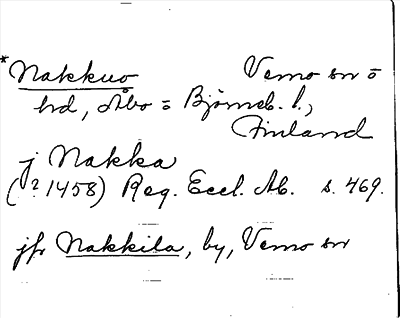 *Nakkuo Vemo sn ō
hd, Åbo ō Björneb. l.,
Finland
j Nakka
(? 1458) Reg. Eccl. Ab. s. 469.
jfr Nakkila, by, Vemo sn